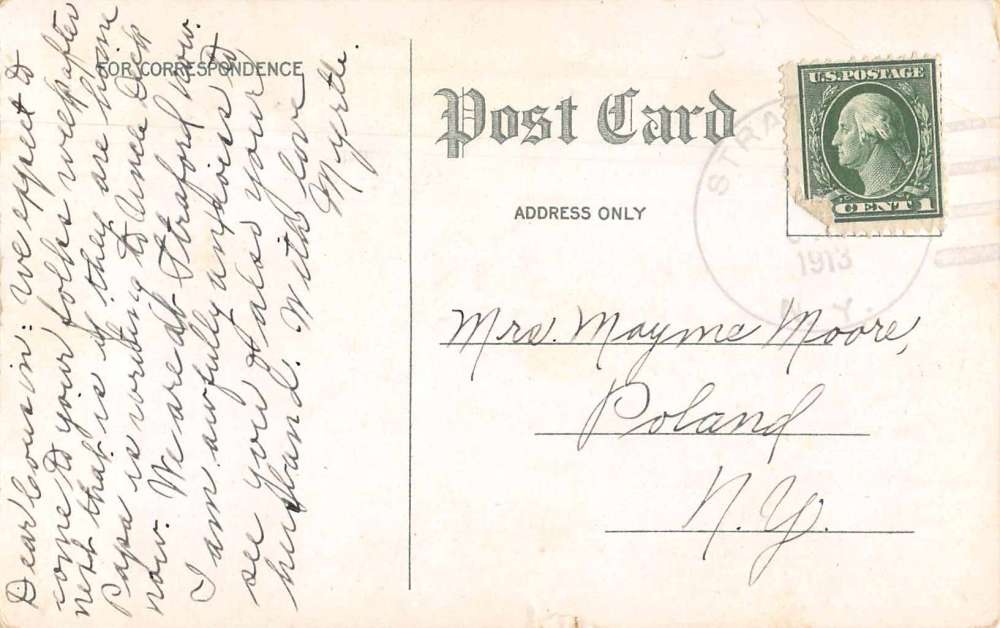 FOR CORRESPONDENCE
Dear cousin: We expect to
come to your folks week after
next that is if they are home
Papa is writing to Uncle Dick
now. We are at Straford now.
I am awfully anxious to
see you & also your
husband. With love
Myrtle.
Post Card
ADDRESS ONLY
U.S. POSTAGE
CENT 1
STRA
1913
N.Y.
Mrs. Mayme Moore,
Poland
N.Y.